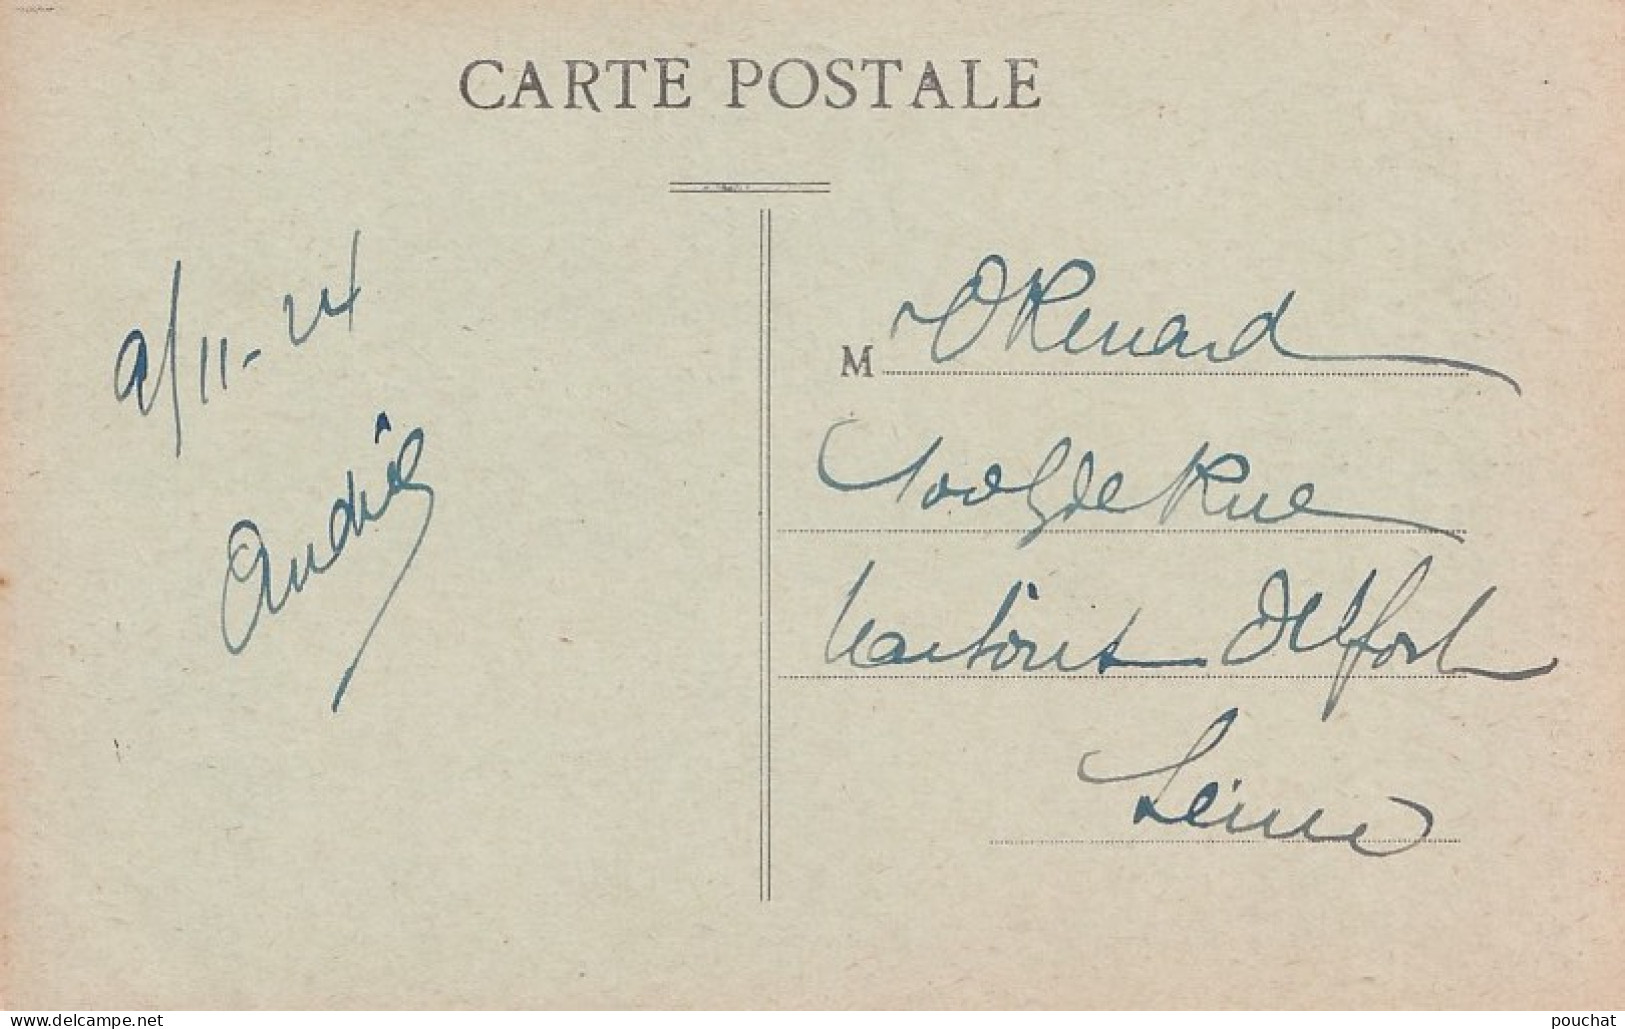 CARTE POSTALE
9/11-24
André
M Renard
de Rue
Maisons Alfort
Seine
www.delcampe.net
pouchat